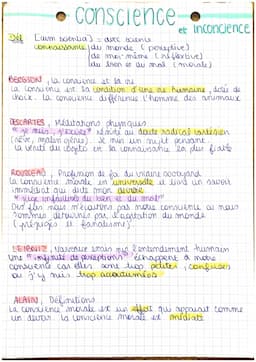 CONSCIENCE
et INCONSCIENCE
Déf [cum scientia] : avec science
connaissance du monde (perceptive)
de moi-même (réflexive)
du bien et du mal (morale)
BERGSON, la conscience et la vie
La conscience est la condition d'une vie humaine, dotée de
choix. La conscience différencie l'homme des animaux
DESCARTES, Méditations physiques
"je suis, j'existe" résiste au doute radical cartésien
(rêve, malin génie). Je suis un sujet pensant.
La vérité du sujet est la connaissance la plus fiable
ROUSSEAU, Profession de foi du vicaire savoyard
La conscience morale est universelle et livre un savoir
immédiat qui dicte mon devoir
"juge infaillible du bien et du mal"
nous n'écoutons pas notre conscience car nous
sommes détournés par l'agitation du monde
(préjugés et fanatisme)
LEIBNIZ, Nouveaux essais sur l'entendement humain
Une "infinité de perceptions" échappent à notre
conscience car elles sont trop petites, confuses
ou j'y suis trop accoutumée
ALAIN, Définitions
La conscience morale est un effort qui apparaît comme
un devoir. La conscience morale est immédiate